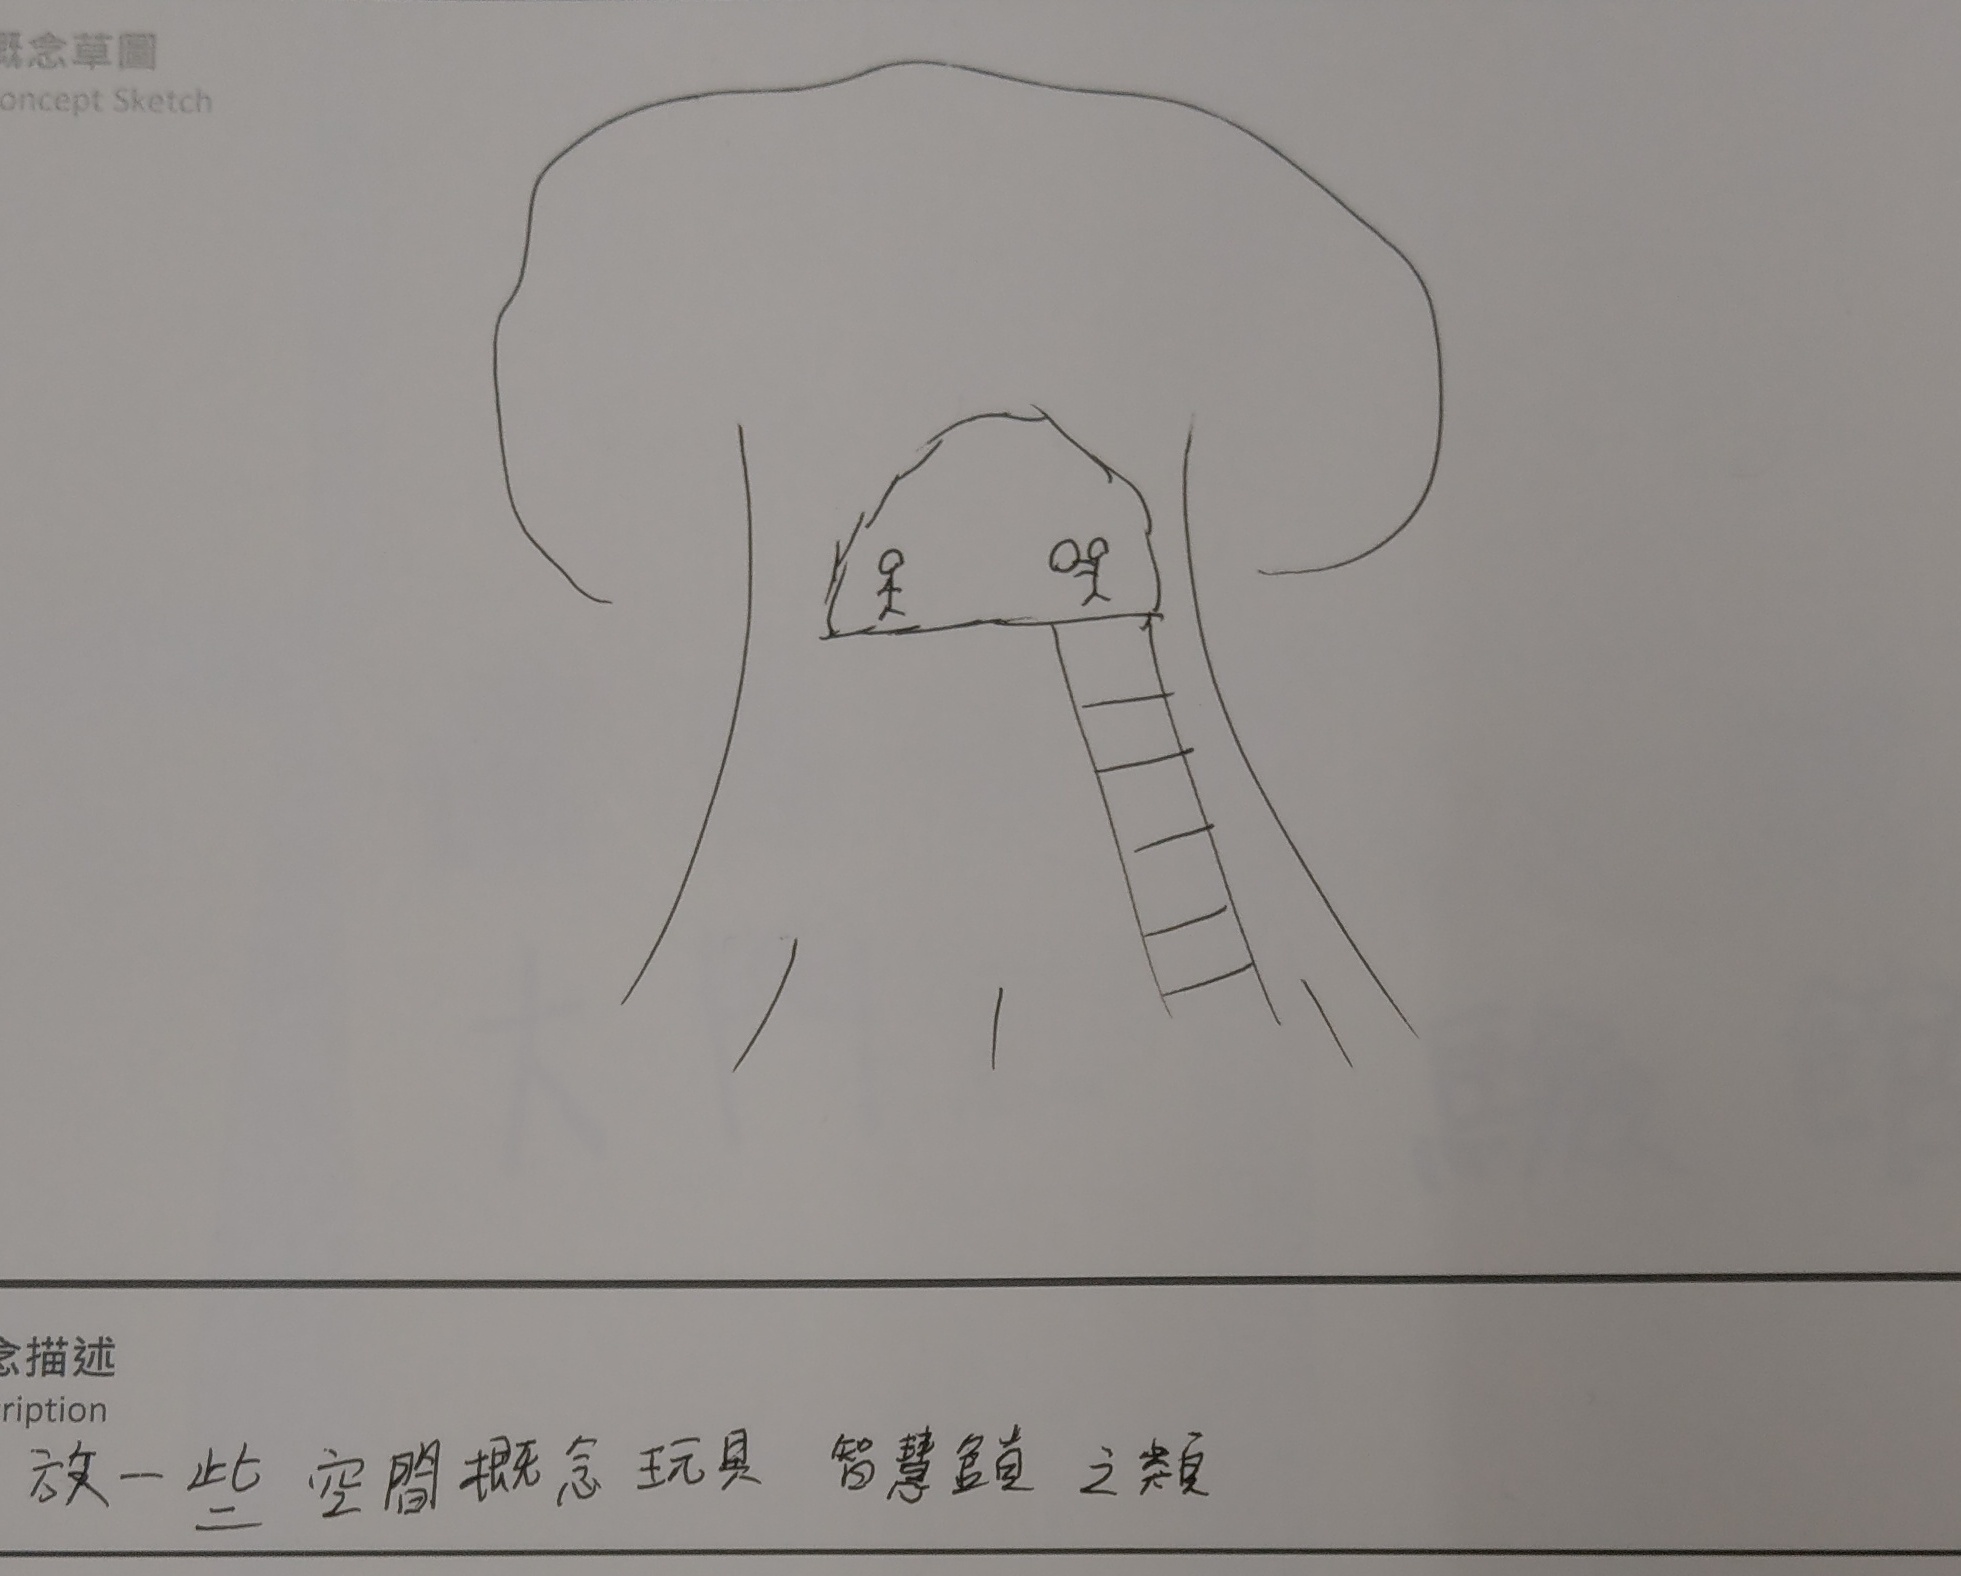 概念草圖
oncept Sketch
念描述
ription
放一些空間概念玩具 智慧鎖 之類